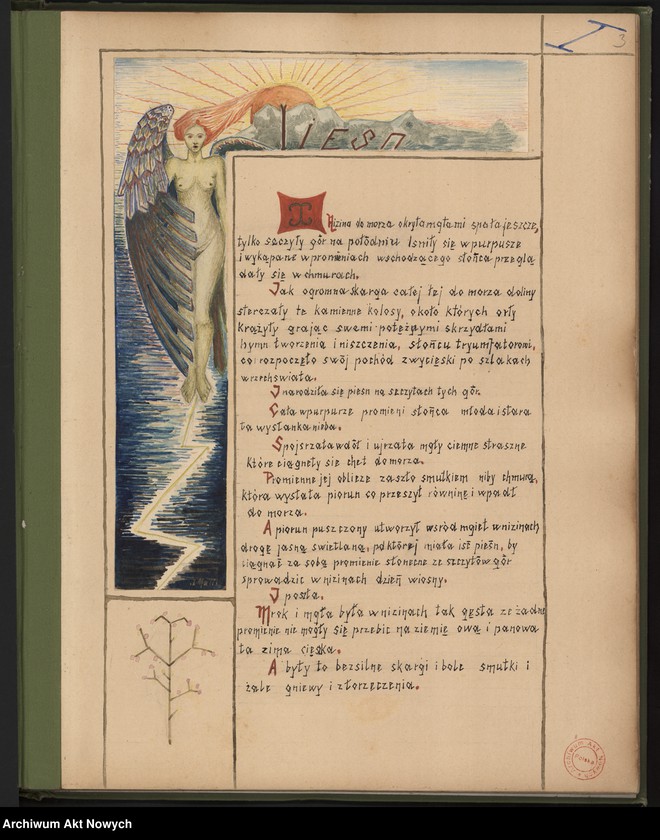 3
PIEŚŃ
Nizina do morza okryta mgłami spała jeszcze,
tylko szczyły gór na połódniu lsniły się w purpusze
i wykąpane w promieniach wschodzącego słońca przeglą
dały się w chmurach.
Jak ogromna skarga całej tej do morza doliny
sterczały te kamienne kolosy, około których orły
krążyły grając swemi potężnymi skrzydłami
hymn tworzenia i niszczenia, słońcu tryumfatorowi,
co rozpoczęło swój pochód zwycięski po szlakach
wrzechświata.
I narodziła się pieśn na szczytach tych gór.
Cała w purpurze promieni słońca młoda i stara
ta wysłanka nieba.
Spojrzała w dół i ujrzała mgły ciemne straszne
które ciągnęły sie chet do morza.
Promienne jej oblicze zaszło smutkiem niby chmurą,
która wysłała piorun co przeszył równinę i wpadł
do morza.
A piorun puszczony utworzył wsród mgieł w nizinach
drogę jasną swietlaną, po której miała iść pieśn, by
ciągnąć za sobą promienie słoneczne ze szczytów gór
sprowadzic w nizinach dzień wiosny.
I poszła.
Mrok i mgła była w nizinach tak gęsta ze żadne
promienie nie mogły się przebic na ziemię ową i panowa
ła zima cięzka.
A były to bezsilne skargi i bole smutki i
żale gniewy i złorzeczenia.
Archiwum Akt Nowych
Archiwum Akt Nowych